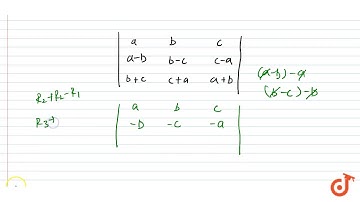 a b c
a-b b-c c-a
b+c c+a a+b
(a-b)-a
(b-c)-b
R₂→R₂-R₁
a b c
R₃→
-b -c -a